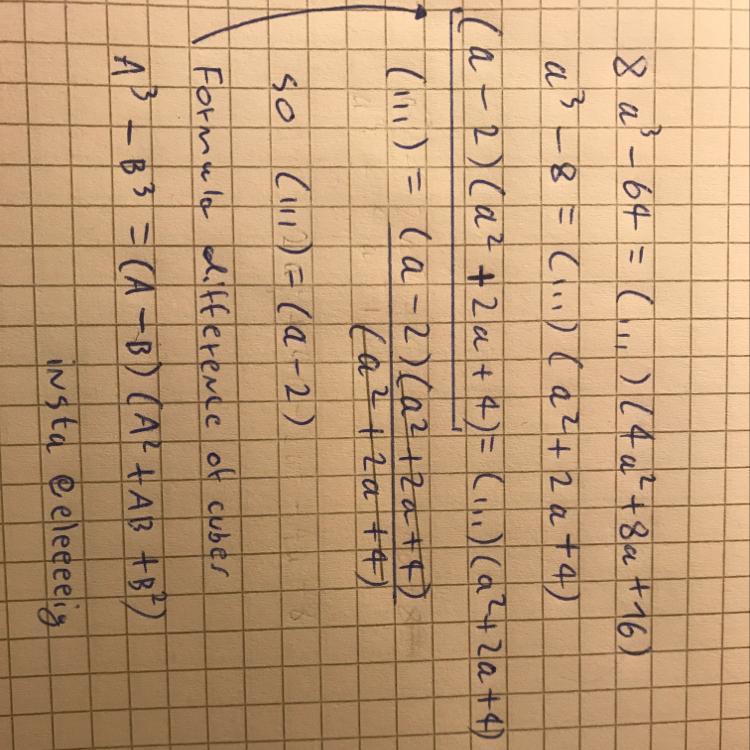 8a³ - 64 = (...) (4a² + 8a + 16)
a³ - 8 = (...) (a² + 2a + 4)
(a - 2)(a² + 2a + 4) = (...)(a² + 2a + 4)
(...) = (a - 2)(a² + 2a + 4)
(a² + 2a + 4)
so (...) = (a - 2)
Formula difference of cubes
A³ - B³ = (A - B)(A² + AB + B²)
insta @eleeeeig